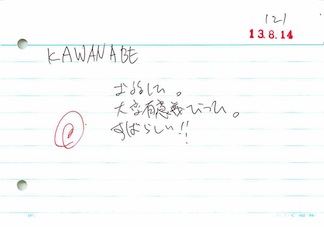 121
13.8.14
KAWANABE
よろしい。
大変有意義でった。
すばらしい!!